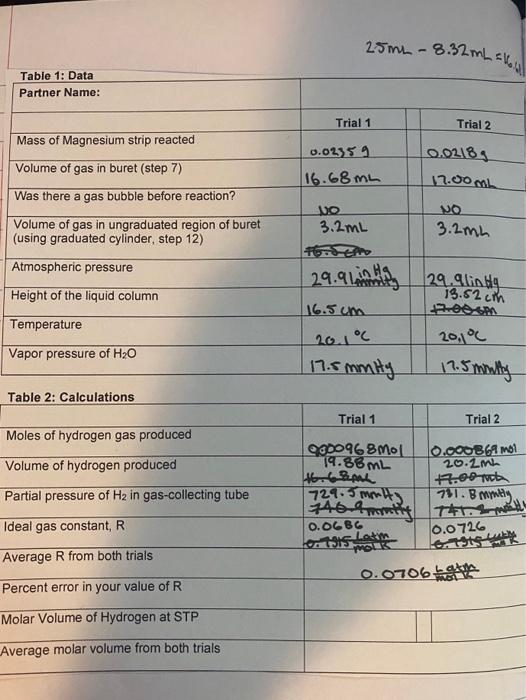 25mL - 8.32mL =
Table 1: Data
Partner Name:
Trial 1 Trial 2
Mass of Magnesium strip reacted 0.0235g 0.0218g
Volume of gas in buret (step 7) 16.68 mL 17.00 mL
Was there a gas bubble before reaction? NO NO
Volume of gas in ungraduated region of buret 3.2mL 3.2mL
(using graduated cylinder, step 12)
Atmospheric pressure 29.91 in Hg 29.91 in Hg
Height of the liquid column 16.5 cm 13.52 cm
Temperature 20.1°C 20.1°C
Vapor pressure of H₂O 17.5 mmHg 17.5 mmHg
Table 2: Calculations
Trial 1 Trial 2
Moles of hydrogen gas produced 0.000968 mol 0.000869 mol
Volume of hydrogen produced 19.88 mL 20.2 mL
16.68 mL 17.00 mL
Partial pressure of H₂ in gas-collecting tube 729.5 mmHg 731.8 mmHg
Ideal gas constant, R 0.0686 0.0726
Average R from both trials 0.0706 L atm
mol K
Percent error in your value of R
Molar Volume of Hydrogen at STP
Average molar volume from both trials